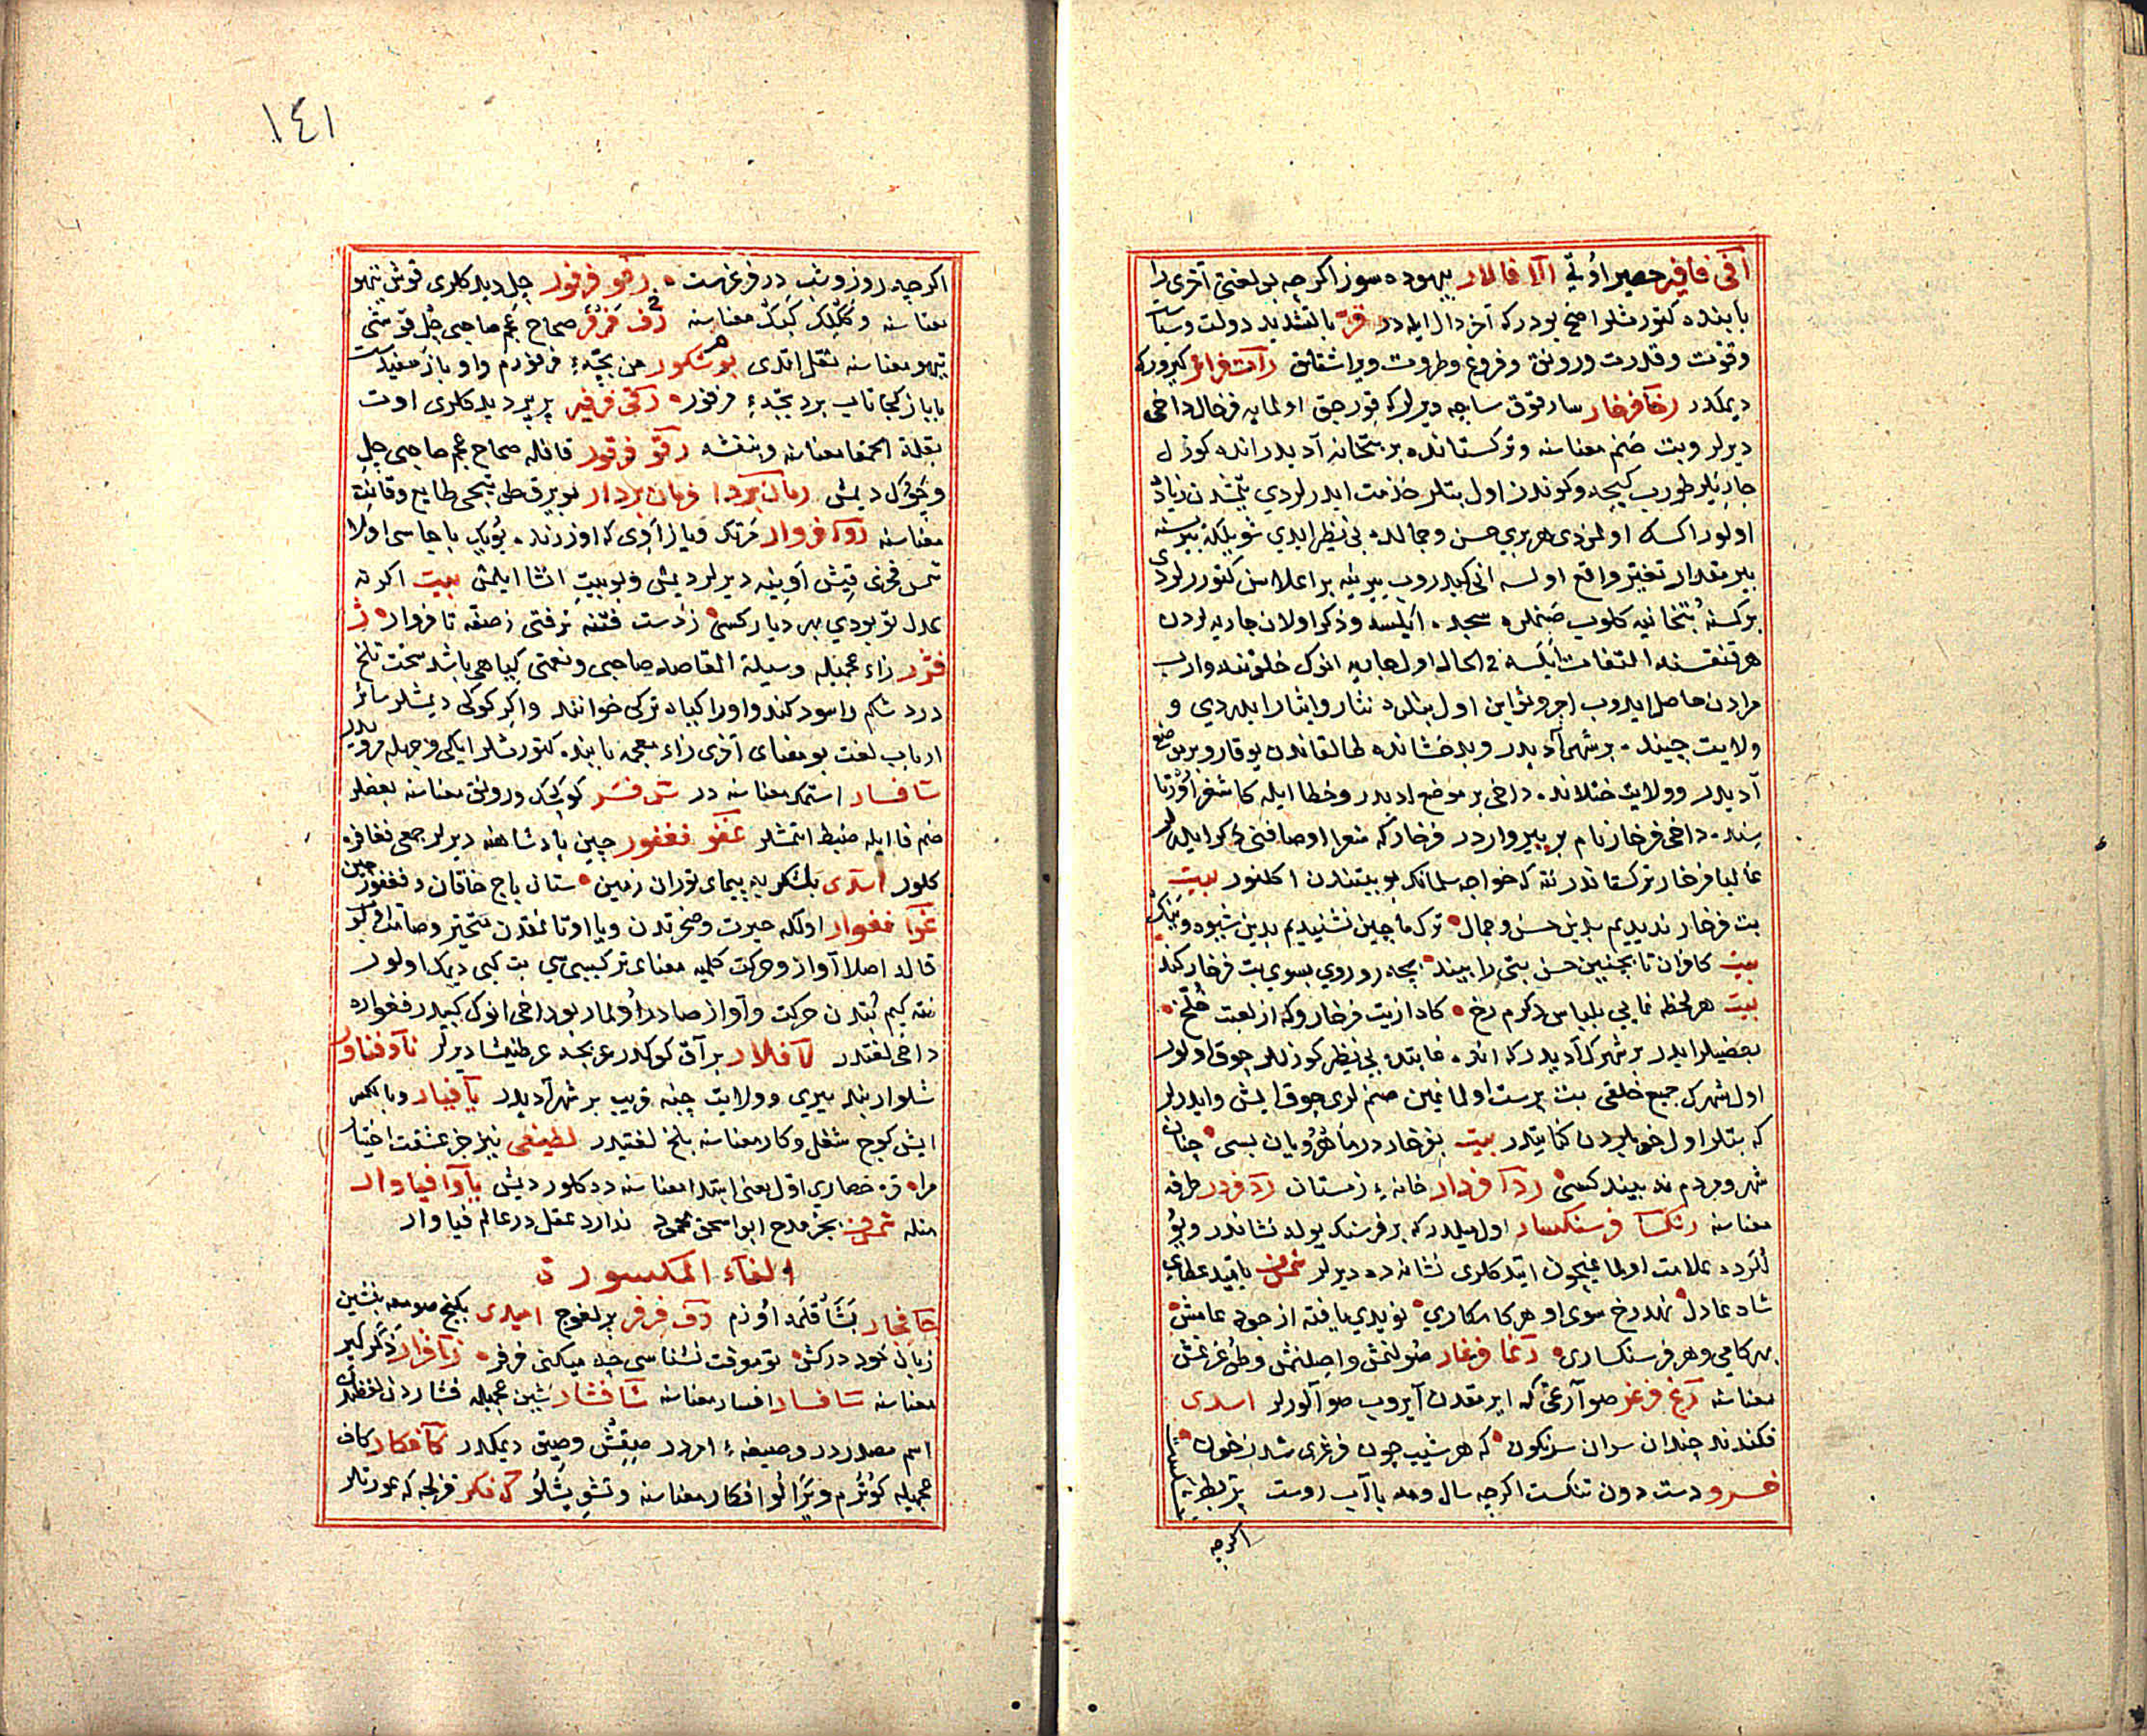 افی فافیر حصیر اوتی الا فالار بیهوده سوز اکرچه بو لغتی آخری را
بابنده کتورمشلر اصح بودرکه آخر دال ایله در فر بالتشدید دولت و سیاست
و قوت و قدرت و رونق و فروغ و طروت و یراشقلق رآت فراتر کیرورک
دیمکدر رخآ فرخار سارقوق ساجه دیرلر که قورجق اولمایه فرخال داخی
دیرلر و بت صنم معناسنه و ترکستانده بر بتخانه آدیدر انده کوزل
جاریه‌لر طورب کیجه و کوندن اول بتلره خذمت ایدرلردی یتمشدن زیاده
اولور اکسک اولمزدی هر بری حسن و جمالده بی نظیر ایدی شویله که بیرسنه
بیر مقدار تغیر واقع اولسه انی کیدروب بیرینه بر اعلاسن کتوررلردی
بر کسنه بتخانیه کلوب صنملره سجده ایلسه و ذکر اولان جاریه‌لردن
هر قنقسنه التفات ایلسه فی الحال اول جاریه انوک خلوتنده وارب
مرادن حاصل ایدوب اجر و ثوابن اول بتلره نثار و ایثار ایدردی و
ولایت چینده بر شهر آدیدر و بدخشانده طالقاندن یوقارو بر موضع
آدیدر و ولایت ختلانده داخی بر موضع ادیدر و خطا ایله کاشغر اورتا
سنده داخی فرخار نام بر ییر واردر فرخار که شعرا اوصافنی ذکر ایدرلر
غالبا فرخار ترکستاندر نته که خواجه سلمانک بو بیتندن اکلنور بیت
بت فرخار ندیدیم بدین حسن و جمال ترک ماچین نشنیدیم بدین شیوه و
بیت کافران تا بچنین حسن بتی را بینند بجه رو روی بسوی بت فرخار کنند
بیت هر لحظه نمایی بلباس دکرم رخ کاد ازیت فرخار و که از لعبت خلخ
بعضیلر ایدر بر شهرک آدیدر که انده غایتده بی نظیر کوزللر چوق اولور
اول شهرک جمیع خلقی بت پرست اولماغین صنملری چوق ایش و ایدرلر
که بتلر اول خوبلردن کنایتدر بیت بفرخار در ماهرویان بسی چنان
شهر و مردم ندیده کسی ردآ فردار خانه زمستان رد فردر طرفه
معناسنه رنکسآ فرسنکسار اول میلدر که بر فرسنک یولده نشاندر و یو
للرده علامت اولماغیچون ایتدکلری نشانه ده دیرلر شمس فخری
شاد عادل نهد رخ سوی او هر کامکاری نویدی یافته از جود عامش
بهر کامی و هر فرسنکساری رغآ فرغار صولنمش و اصلنمش و طرغرنمش
معناسنه رغ فرغر صو آرغی که ایرمقدن آیروب صو آلورلر اسدی
فکندند چندان سران سرنکون که هر شیب چون فرغری شد ز خون
خسرو دست دون تنکست اکرچه سال و مه با آب روست
اکرچه
١٤١
اکرچه روز و شب در فرغرست رفو فرفور چل دیدکلری قوش تیهو
معناسنه و ککلک کبک معناسنه رف فرفر صحاح عجم صاحبی چل قوشنی
تیهو معناسنه نقل اتدی بوشکور من بچه فرفورم و او باز سفیدست
با باز کجا تاب برد بچه فرفور رفی فرفیر پرپر دیدکلری اوت
بقلة الحمقا معناسنه و بنفشه رقو فرقور قافله صحاح عجم صاحبی چل
و چوک دیمش رمان بردا فرمان بردار بویرق طوتیجی طایع و قانت
معناسنه روآ فروار فرتک و یاز آوی که اوزرنده بویک باجاسی اولا
شمس فخری قیش آوینه دیرلر دیمش و بو بیت انشا ایلمش بیت اکر نه
عدل تو بودی بهر دیار کسی ز دست فتنه نرفتی ز صفه تا فروار ژ
فژر زاء عجمیله وسیلة المقاصد صاحبی و نعمتی کیاهی باشد سخت تلخ
درد شکم را سود کند و اورا کیاه ترکی خوانند و اکر کوکی دیمشلر سائر
ارباب لغت بو معنای آخری زاء معجمه بابنده کتورمشلر ایکی وجهله مرویدر
سآ فسار استمک معناسنه در سر فسر کوچک و رونق معناسنه بعضلر
ضم فا ایله ضبط اتمشلر غفو فغفور چین پادشاهنه دیرلر جمعی فغافره
کلور اسدی بلشکر پیمای توران زمین ستان باج خاقان و فغفور چین
غوآ فغوار اولکه حیرت و ضجرتدن و یا اوتانمقدن متحیر و صامت
قاله اصلا آواز و حرکت قلمیه معنای ترکیبیسی بت کبی دیمک اولور
نته کیم بتدن حرکت و آواز صادر اولماز بو داخی انوک کبیدر فغواره
داخی لغتدر لآ فلار بر آق کوکدر عربجه عرطنیثا دیرلر نآو فناور
شلوار بند ییری و ولایت چینه قریب بر شهر آدیدر یآ فیار و بالکسر
ایش کوچ شغل و کار معناسنه بلخ لغتیدر لطیفی نیز جز عشقت اختیار
مراه قره حصاری اول یعنی ابتدا معناسنه ده کلور دیش یآوآ فیاوار
مثله شمس بجز مدح ابو اسحق محمود ندارد عقل در عالم فیاوار
الفاء المکسورة
خآ فخار بشاقلمه اوزم رف فرفر برلغوج امیدی بکنج صومعه بنشین
زبان خود درکش تو موقت نشناسی چه میکنی فرفر زآ فزار ذکر کیر
معناسنه سآ فسار افسار معناسنه شآ فشار شین عجمیله فشاردن لغتدر
اسم مصدردر و صیغه امردر صیقش و صیق دیمکدر کآ فکار کاف
عجمیله کوترم و یرالو افکار معناسنه و تشویشلو ک فکر قرلجه که عورتلر